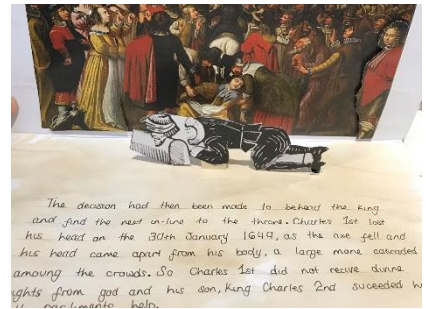 The decision had then been made to behead the king
and find the next in-line to the throne. Charles 1st lost
his head on the 30th January 1649, as the axe fell and
his head came apart from his body, a large mone cascaded
amoung the crowds. So Charles 1st did not recive divine
ghts from god and his son, King Charles 2nd suceeded h
parliments help.